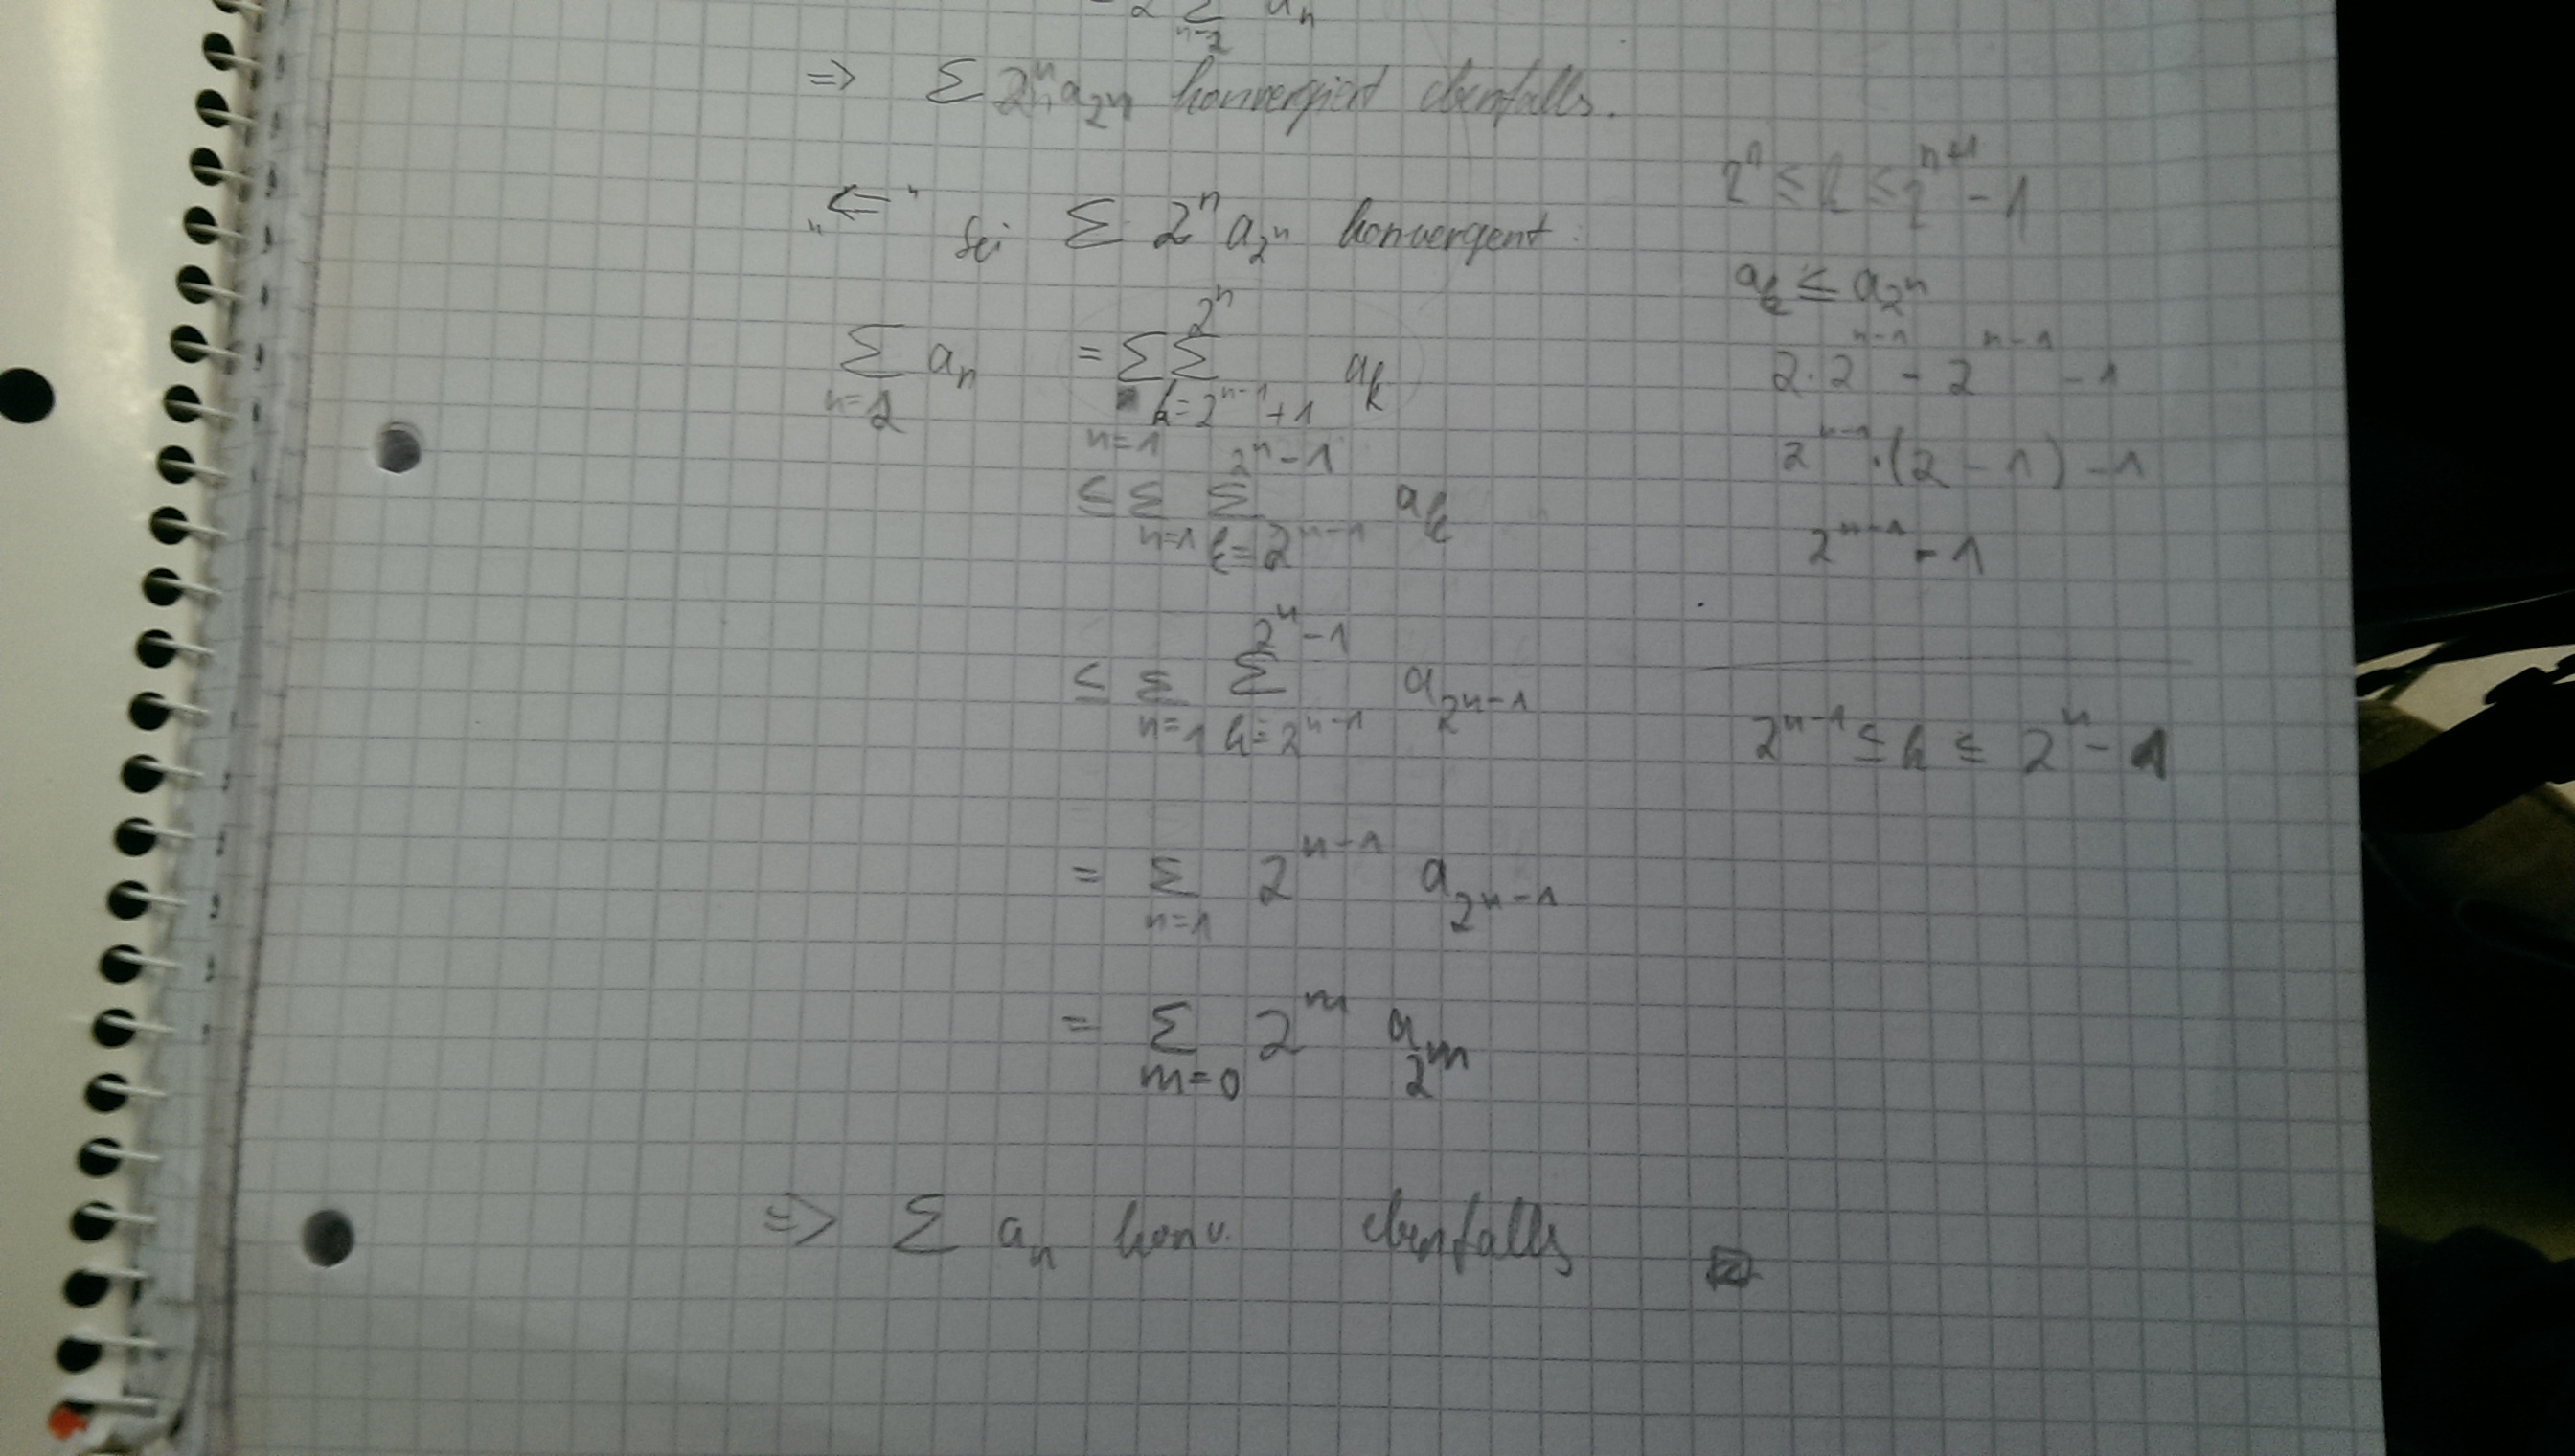 = 2 Σ_{n=2} a_n
⇒ Σ 2^n a_{2^n} konvergiert ebenfalls.
„⇐“ Sei Σ 2^n a_{2^n} konvergent.
Σ_{n=2} a_n = Σ_{n=1} Σ_{k=2^{n-1}+1}^{2^n} a_k
≤ Σ_{n=1} Σ_{k=2^{n-1}}^{2^n-1} a_k
≤ Σ_{n=1} Σ_{k=2^{n-1}}^{2^n-1} a_{2^{n-1}}
= Σ_{n=1} 2^{n-1} a_{2^{n-1}}
= Σ_{m=0} 2^m a_{2^m}
⇒ Σ a_n konv. ebenfalls
2^n ≤ k ≤ 2^{n+1} - 1
a_k ≤ a_{2^n}
2·2^{n-1} - 2^{n-1} - 1
2^{n-1}·(2 - 1) - 1
2^{n-1} - 1
2^{n-1} ≤ k ≤ 2^n - 1